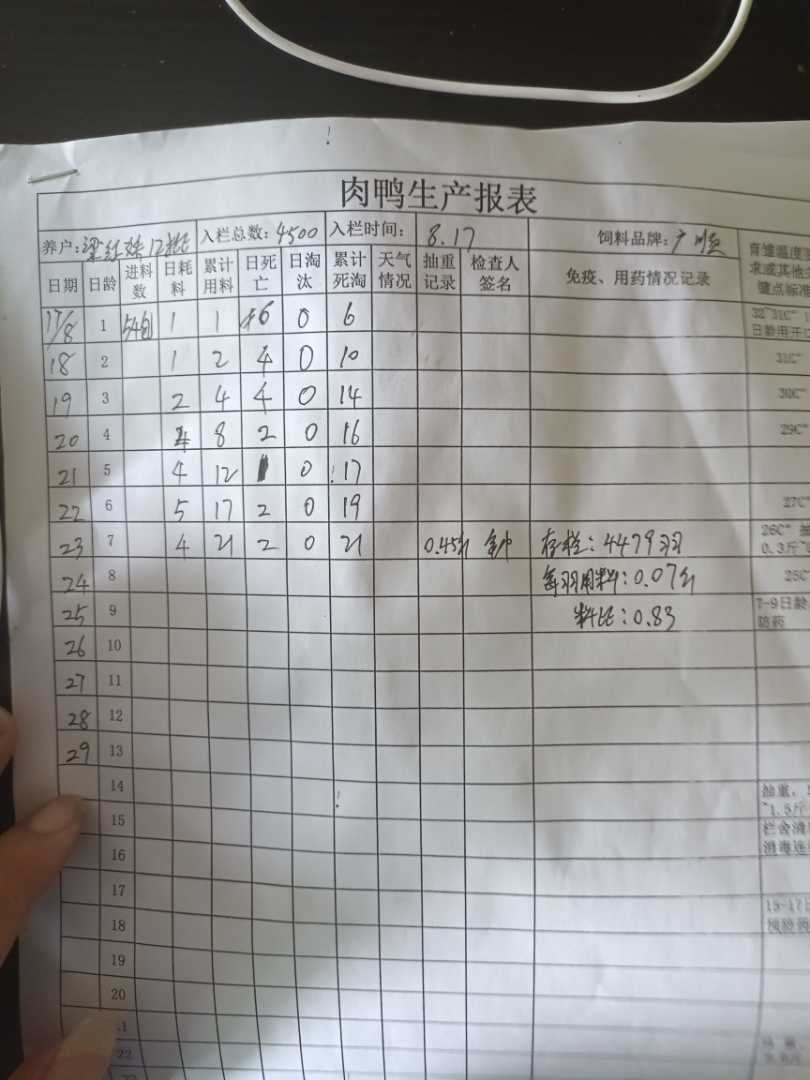 肉鸭生产报表
养户: 12批 入栏总数: 4500 入栏时间: 8.17 饲料品牌: 广
日期 日龄 进料数 日耗料 累计用料 日死亡 日淘汰 累计死淘 天气情况 抽重记录 检查人签名 免疫、用药情况记录
17/8 1 54包 1 1 6 0 6 32~31C°
日龄用开口
18 2 1 2 4 0 10 31C°
19 3 2 4 4 0 14 30C°
20 4 4 8 2 0 16 29C°
21 5 4 12 1 0 17
22 6 5 17 2 0 19 27C°
23 7 4 21 2 0 21 0.45斤 存栏: 4479羽 26C°
0.3斤~
24 8 每羽用料: 0.07 25C°
25 9 料比: 0.83 7-9日龄
防药
26 10
27 11
28 12
29 13
14 抽重,
15 ~1.5斤
栏舍清
16 消毒
17 15-17日
18
19
20
22